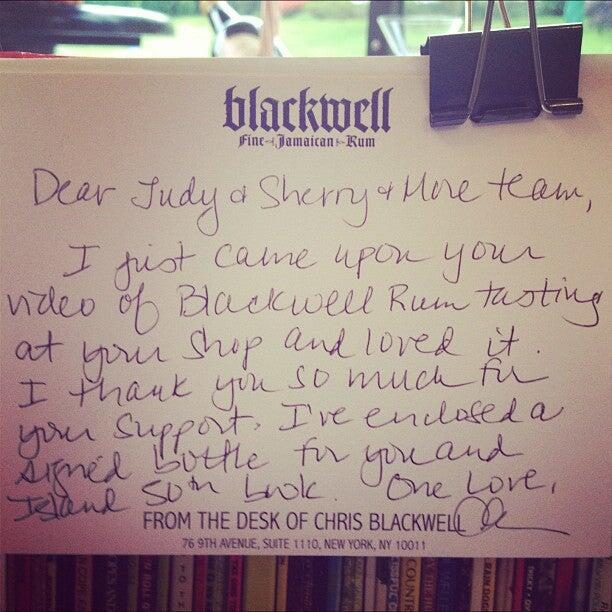 blackwell
Fine Jamaican Rum
Dear Judy & Sherry & More team,
I just came upon your
video of Blackwell Rum tasting
at your shop and loved it.
I thank you so much for
your support. I've enclosed a
signed bottle for you and
Island 50th book. One Love,
FROM THE DESK OF CHRIS BLACKWELL
76 9TH AVENUE, SUITE 1110, NEW YORK, NY 10011